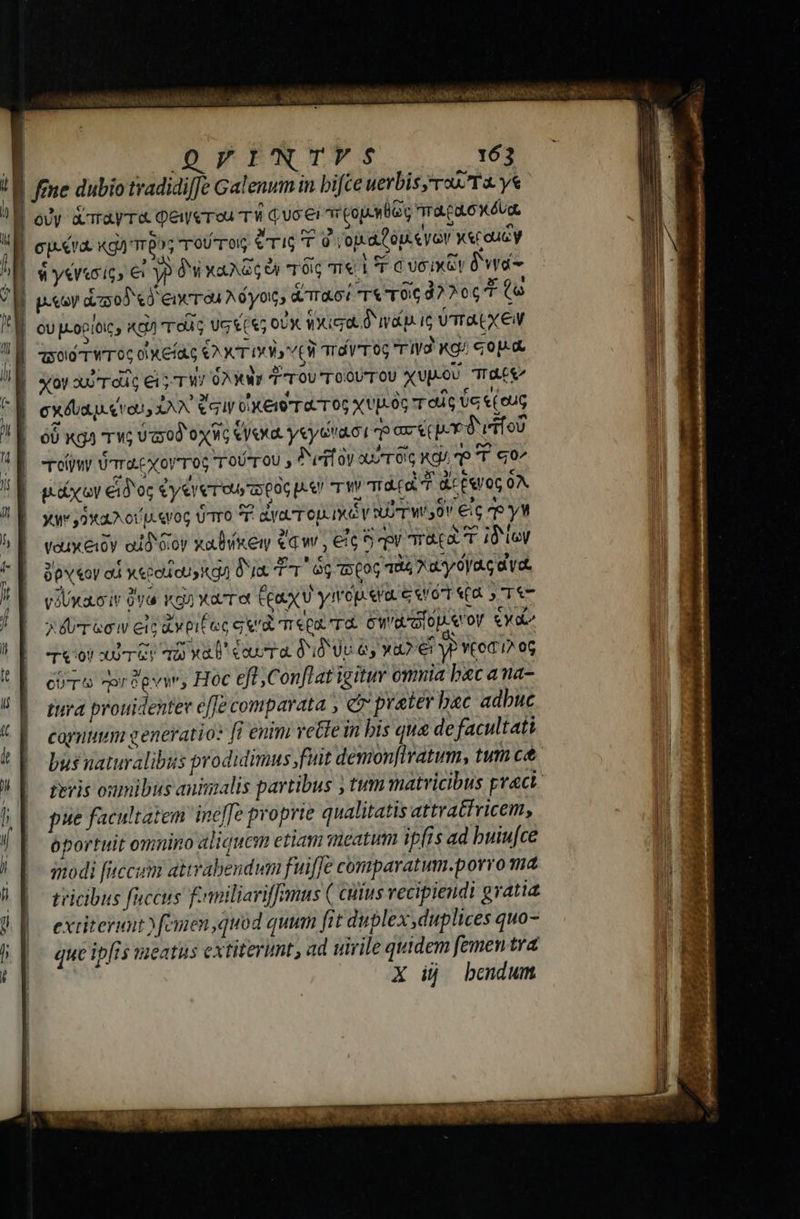 QVINTVS 163
ſine dubio tradidiſſe Galenum in hiſce uerbis, ταῦτα γε
οὖν ἅπαντα φαίνεται τῇ φύσει προμηθῶς παρασκόυα
σμένα καὶ πρὸς τούτοις ἔτις ἡ ὀνομαζομένων κεραιῶν
ἡ γένεσις, εἰ γὸ δὴ καλῶς ἐν τοῖς περὶ τ φυσικῶν δυνά-
μεων ἀποδέδεικται λόγοις, ἅπασί τε τοῖς ἄλλοις τ ζώ
ου μορίοις, καὶ ταῖς ὑστέραις οὐχ ἥκιστα δύναμις ὑπάρχειν
ποιότητος οἰκείας ἑλκτικὴ, χρὴ πάντως τινὰ καὶ στόμα
χον αὐταῖς εἰς τὴν ὁλκὴν τ τοιούτου χυμοῦ παρε-
σκόυασμένον, ἀλλ' ἔστιν οἰκειότατος χυμὸς ταῖς ὑστέραις
οὗ καὶ τῆς ὑποδοχῆς ἕνεκα γεγόνασι τὸ σπέρμα διττοῦ
τοίνυν ὑπάρχοντος τούτου, διττὸν αὐταῖς καὶ τὸ τ στο-
μάχων εἶδος ἐγένετο, πρὸς μὲν τὴν παρὰ τ ἄρρενος ὁλ
κὴν, ὁ καλούμενος ὑπὸ τ ἀνατομικῶν αὐτὴν, ὃν εἰς τὸ γυ
ναικεῖον αἰδοῖον καθήκειν ἔφην, εἰς δὲ τὴν παρὰ τ ἰδίων
ὄρχεων αἱ κεραῖαι, καὶ διὰ τ τ' ὡς πρὸς τὰς λαγόνας ἀνα
νόυκασιν ἄνω καὶ κατὰ βραχὺ γινόμεναι στενότεραι, τε-
λόυτῶσιν εἰς ἀκριβῶς στενὰ πέρατα συναπτόμενον ἑκά-
τερον αὐτῶν τῷ καθ' ἑαυτὰ διδύμῳ, καλεῖ γὸ νεοσιλος
οὕτω τὸν ὄρχιν, Hoc eſt, Conſtat igitur omnia hæc a na-
tura prouidenter eſſe comparata, & præter hæc adhuc
cornuum generatio: ſi enim recte in his quæ de facultati
bus naturalibus prodidimus, fuit demonſtratum, tum cæ
teris omnibus animalis partibus, tum matricibus præci
pue facultatem ineſſe proprie qualitatis attractricem,
oportuit omnino aliquem etiam meatum ipſis ad huiuſce
modi ſuccum attrahendum fuiſſe comparatum. porro ma
tricibus ſuccus familiariſſimus ( cuius recipiendi gratia
extiterunt ) ſemen, quod quum ſit duplex, duplices quo-
que ipſis meatus extiterunt, ad uirile quidem ſemen tra
X iij hendum